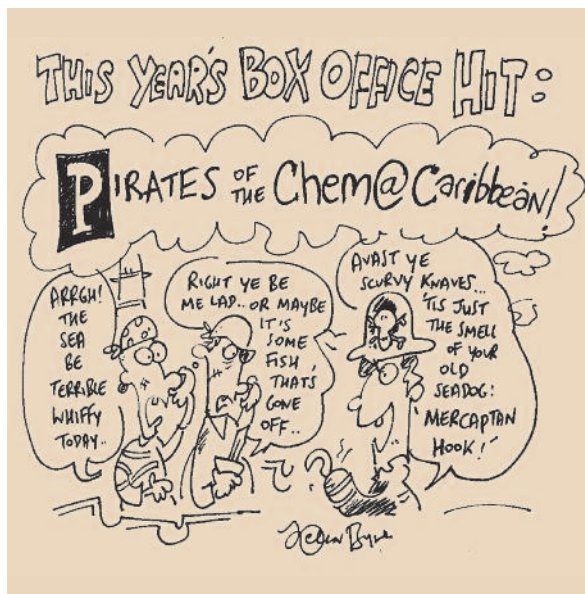 THIS YEAR'S BOX OFFICE HIT:
PIRATES OF THE Chem@Caribbean!
ARRGH!
THE
SEA
BE
TERRIBLE
WHIFFY
TODAY..
RIGHT YE BE
ME LAD.. OR MAYBE
IT'S
SOME
FISH
THAT'S
GONE
OFF..
AVAST YE
SCURVY KNAVES...
'TIS JUST
THE SMELL
OF YOUR
OLD
SEADOG:
'MERCAPTAN
HOOK!'